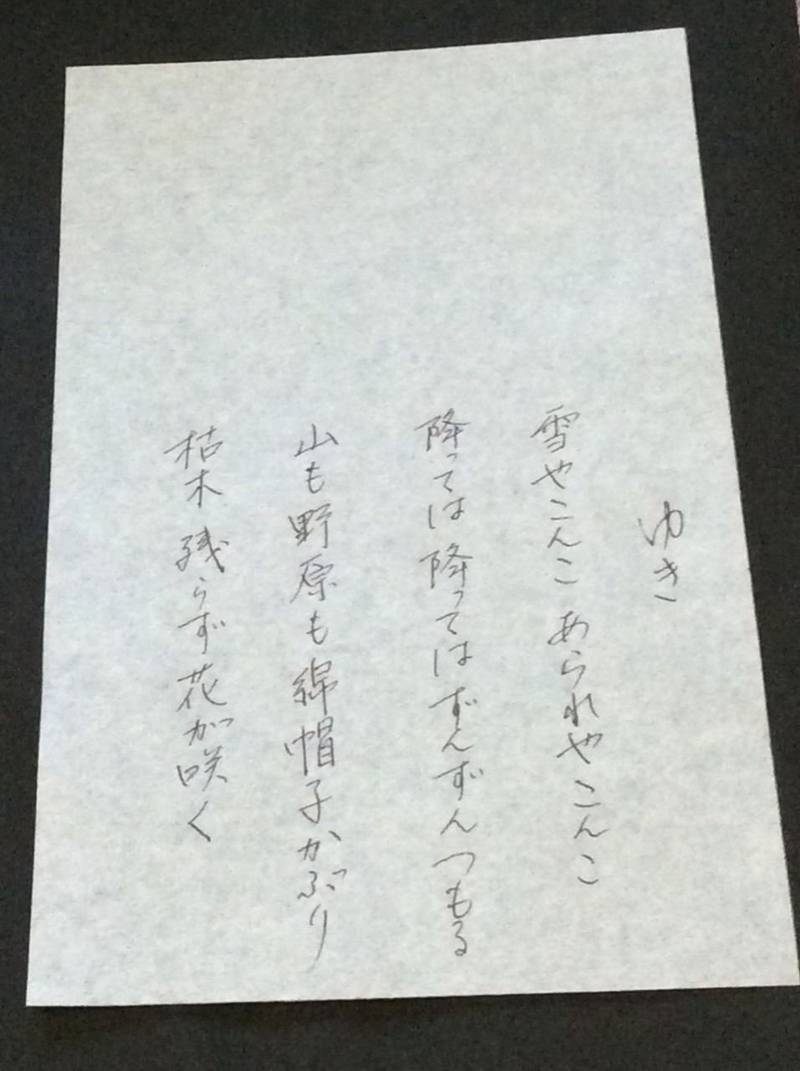 ゆき
雪やこんこ あられやこんこ
降っては 降っては ずんずんつもる
山も野原も綿帽子かぶり
枯木 残らず花が咲く